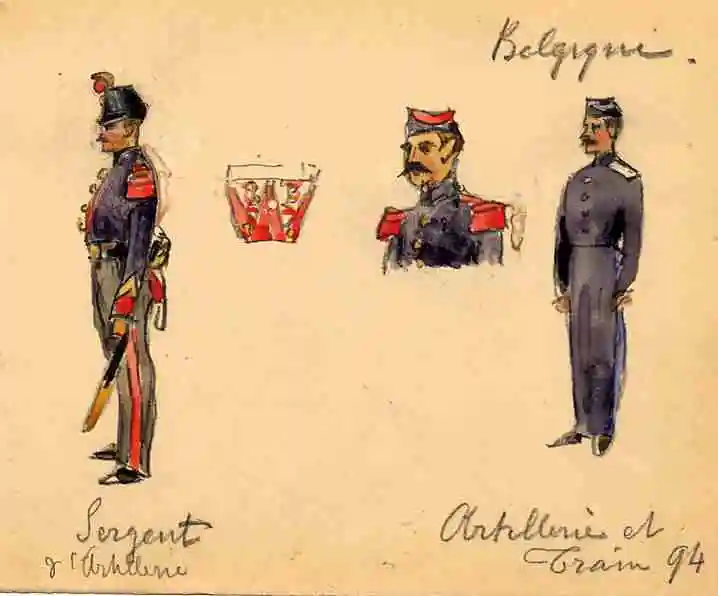 Belgique.
Sergent
d'Artillerie
Artillerie et
Train 94